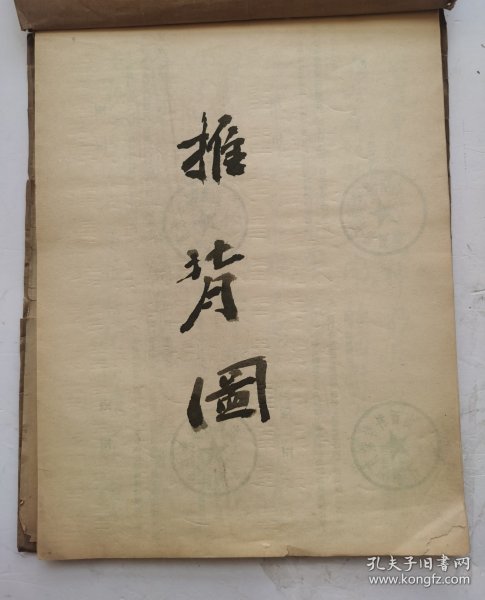 推背圖
孔夫子旧书网
www.kongfz.com